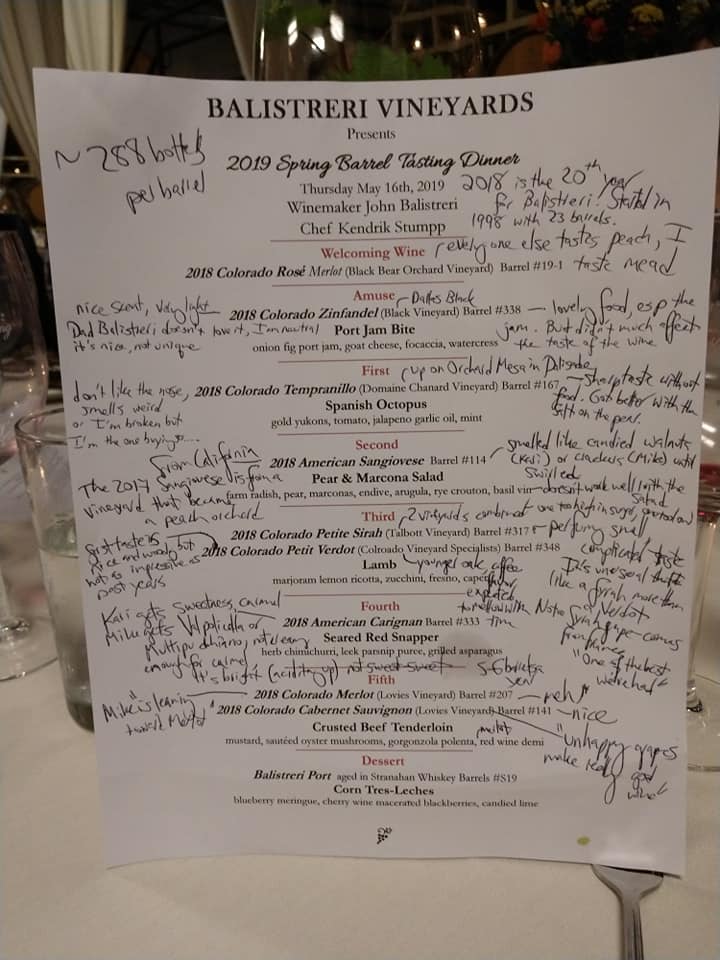 BALISTRERI VINEYARDS
Presents
~ 288 bottles
per barrel
2019 Spring Barrel Tasting Dinner
Thursday May 16th, 2019
2018 is the 20th year
Winemaker John Balistreri
for Balistreri! Started in
Chef Kendrik Stumpp
1998 with 23 barrels.
Welcoming Wine
everyone else tastes peach, I
taste mead
2018 Colorado Rosé Merlot (Black Bear Orchard Vineyard) Barrel #19-1
Amuse
Black
nice scent, very light
2018 Colorado Zinfandel (Black Vineyard) Barrel #338
lovely food, esp the
jam. But didn't much affect
the taste of the wine
Dad Balistreri doesn't love it, I'm neutral
it's nice, not unique
Port Jam Bite
onion fig port jam, goat cheese, focaccia, watercress
First
up on Orchard Mesa in Palisade
don't like the nose,
smells weird
or I'm broken but
I'm the one buying so....
2018 Colorado Tempranillo (Domaine Chanard Vineyard) Barrel #167
Sharp taste without
food. Got better with the
salt on the
Spanish Octopus
gold yukons, tomato, jalapeno garlic oil, mint
Second
from California
2018 American Sangiovese Barrel #114
smelled like candied walnuts
(Kari) or crackers (Mike) until
swirled
The 2017 Sangiovese is from a
vineyard that became
a peach orchard
Pear & Marcona Salad
farm radish, pear, marconas, endive, arugula, rye crouton, basil vin
doesn't work well with the
salad
Third
2 vineyards combined one too high in sugar,
2018 Colorado Petite Sirah (Talbott Vineyard) Barrel #317
perfumy smell
complicated taste
first taste is
nice and woody but
not as impressive as
past years
2018 Colorado Petit Verdot (Colroado Vineyard Specialists) Barrel #348
Lamb
younger oak, coffee
flavor,
expected
to mellow with
time
marjoram lemon ricotta, zucchini, fresno, caper
It's unusual that it's
like a syrah more than
Verdot
syrah grape comes
from France
"One of the best
we've had"
Fourth
Kari gets sweetness, caramel
Mike gets Valpolicella or
Multipulchiano, not creamy
enough for caramel
2018 American Carignan Barrel #333
Seared Red Snapper
herb chimichurri, leek parsnip puree, grilled asparagus
It's bright (acidity up) not sweet sweet
5-6 barrels a
year
Fifth
"Mike is leaning
toward Merlot"
2018 Colorado Merlot (Lovies Vineyard) Barrel #207
meh
2018 Colorado Cabernet Sauvignon (Lovies Vineyard) Barrel #141
nice
Crusted Beef Tenderloin
merlot
mustard, sautéed oyster mushrooms, gorgonzola polenta, red wine demi
"unhappy grapes
make really
good
wine"
Dessert
Balistreri Port aged in Stranahan Whiskey Barrels #S19
Corn Tres-Leches
blueberry meringue, cherry wine macerated blackberries, candied lime